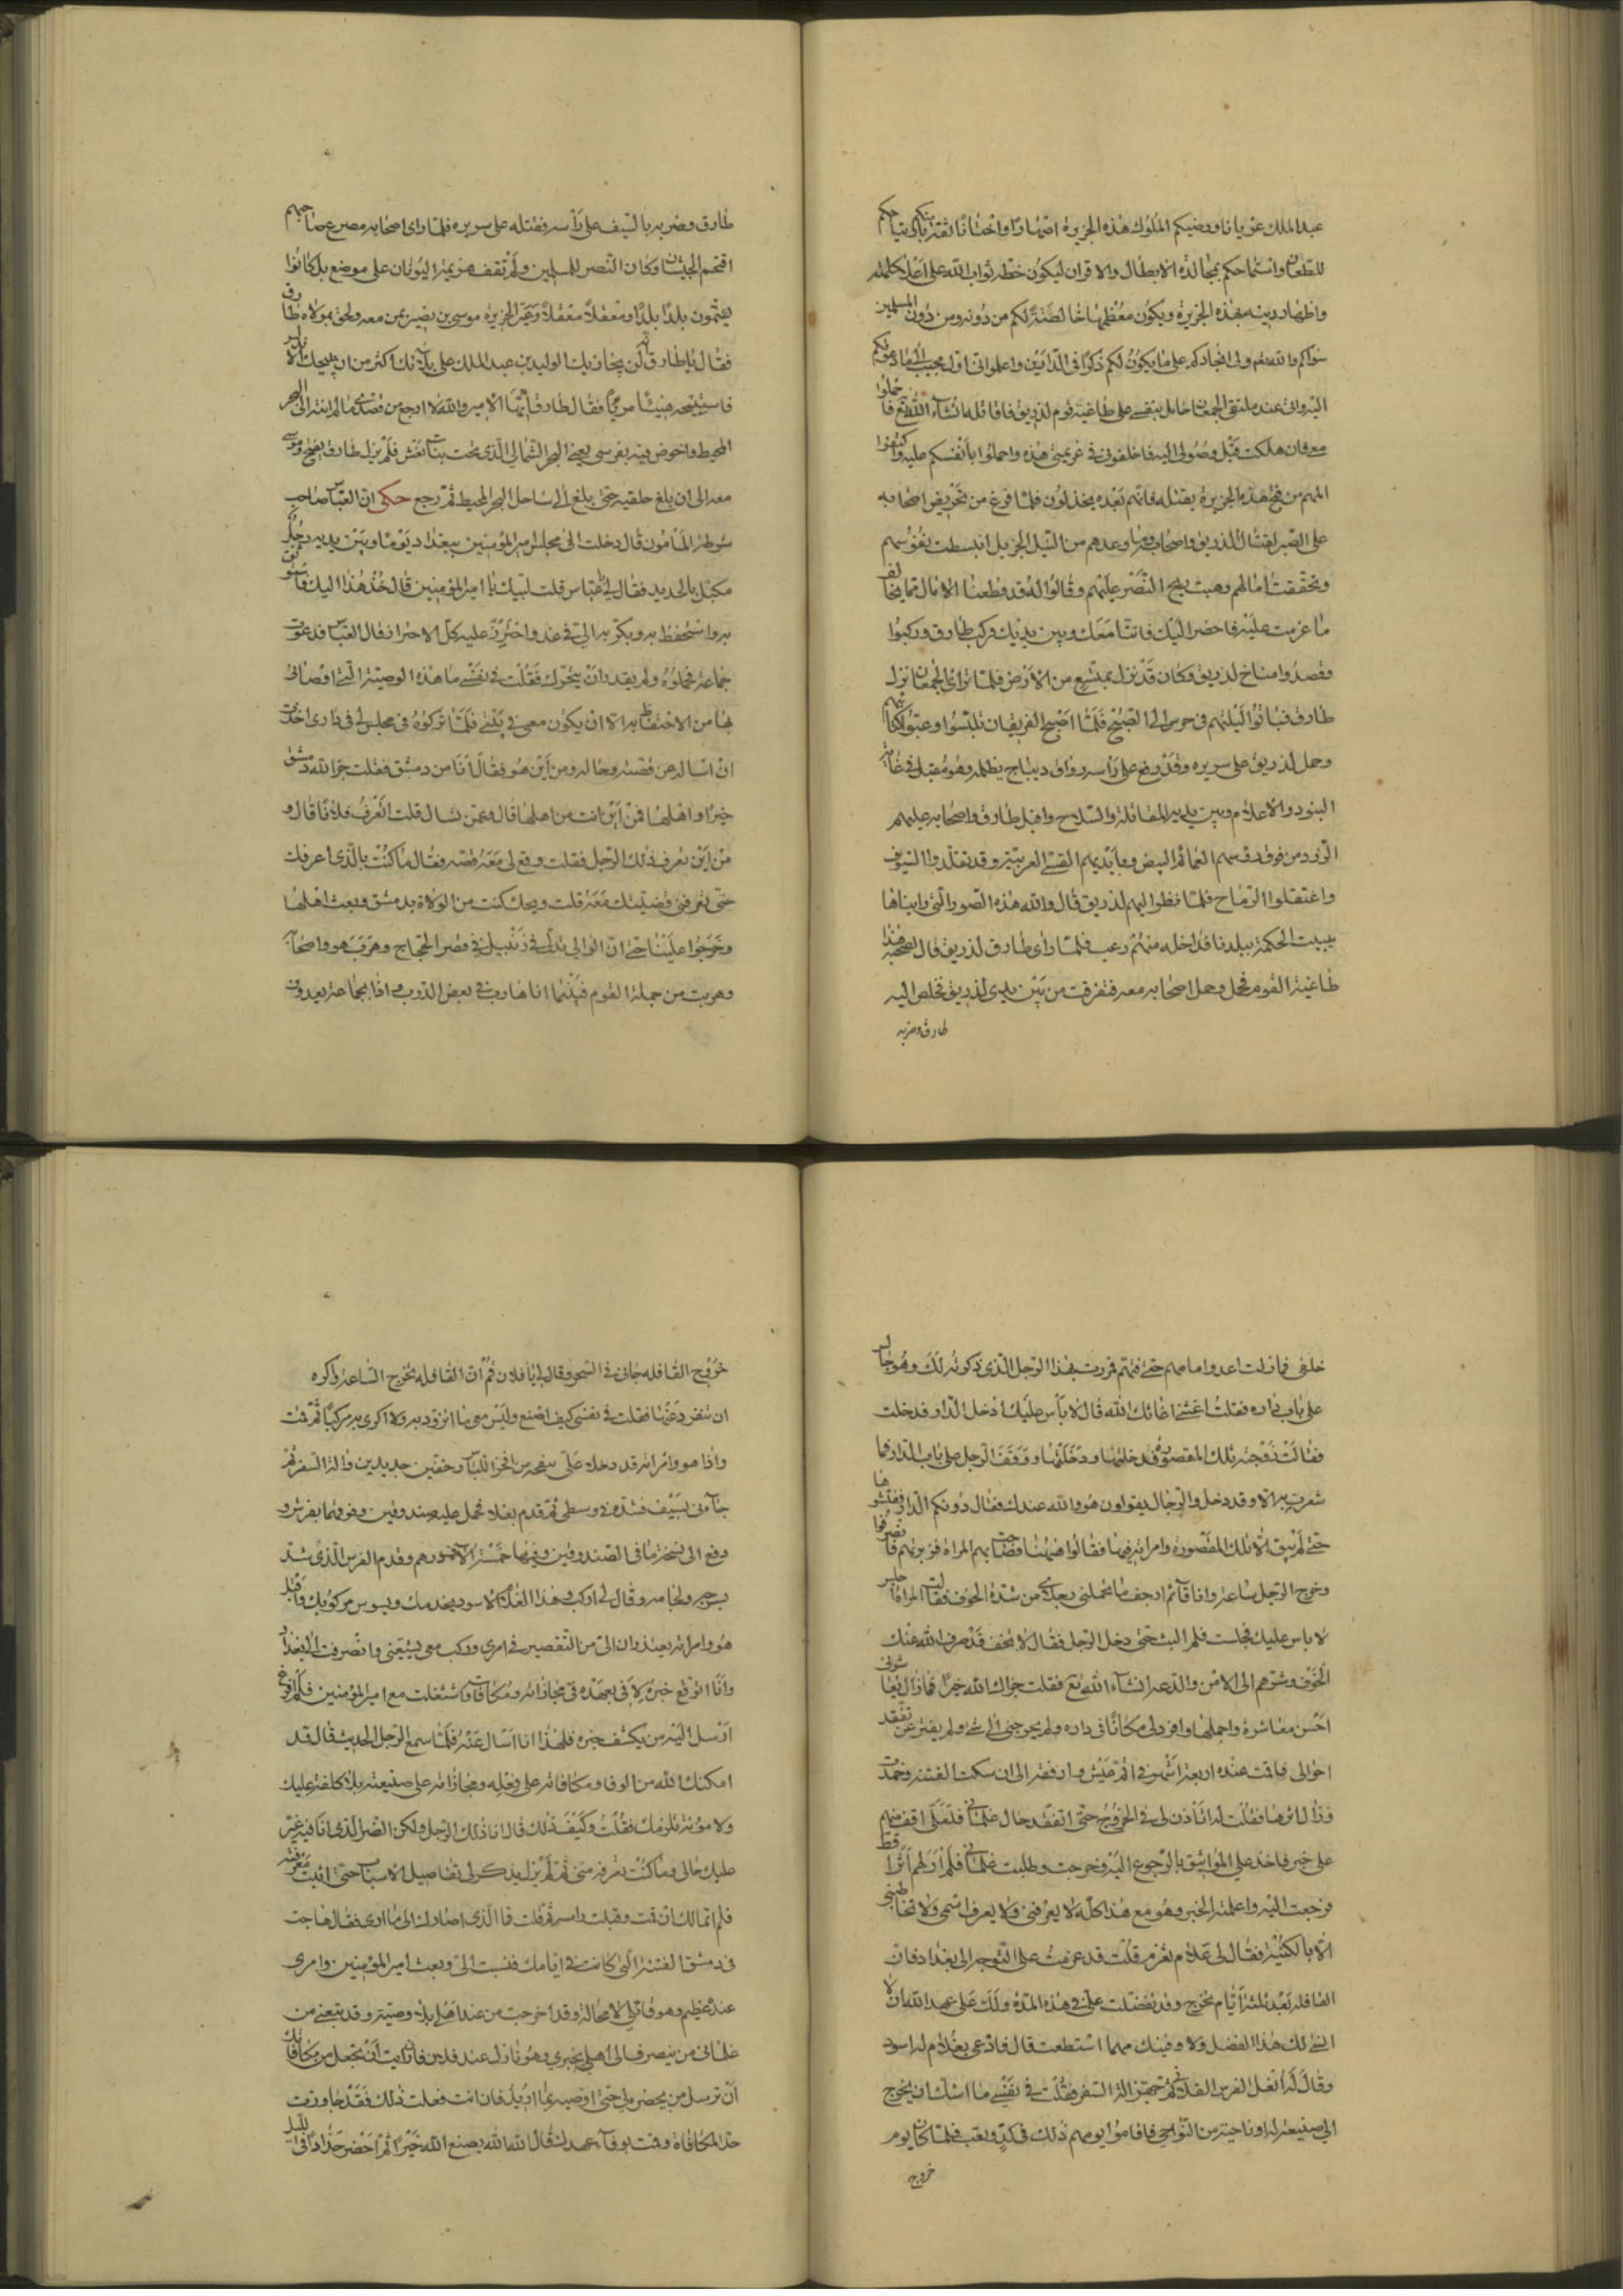 عبد الملك عزبانا ورضيكم لملوك هذه الجزيرة اصهارا واختانا ثقة منكم بارتياحكم
للطعان واستماحكم بمجالدة الابطال والاقران ليكون حظه ثواب الله على اعلاء كلمته
واظهار دينه بهذه الجزيرة ويكون مغنمها خالصة لكم من دونه ومن دون المسلمين
سواكم والله تعم ولى انجادكم على ما يكون لكم ذكرا فى الدارين واعلموا انى اول مجيب الى ما دعوتكم
اليه وانى عند ملتقى الجمعان حامل بنفسى على طاغية قوم لذريق فاقاتله ان شاء الله تع فاحملوا
معى فان هلكت قبل وصولى اليه فاخلفونى فى عزيمتى هذه واحملوا بانفسكم عليه واكتفوا
المهم من فتح هذه الجزيرة بقتله فانهم بعده يخذلون فلما فرغ من تحريض اصحابه
على الصبر لقتال لذريق واصحابه وما وعدهم من النيل الجزيل انبسطت نفوسهم
وتحققت امالهم وهبت ريح النصر عليهم وقالوا له قد قطعنا الامال مما يخالف
ما عزمت عليه فاحضر اليه فاننا معك وبين يديك فركب طارق وركبوا
وقصدوا مناخ لذريق وكان قد نزل بمتسع من الارض فلما تراءى الجمعان نزل
طارق فباتوا ليلتهم فى حرس الى الصبح فلما اصبح الفريقان تلبسوا وعبوا كتائبهم
وحمل لذريق على سريره وقد رفع على راسه رواق ديباج يظله وهو مقبل فى غابة
البنود والاعلام وبين يديه المقاتلة والسلاح واقبل طارق واصحابه عليهم
الزرد من فوق رؤسهم العمائم البيض وبايديهم القسى العربية وقد تقلدوا السيوف
واعتقلوا الرماح فلما نظر اليهم لذريق قال والله هذه الصور التى رايناها
ببيت الحكمة ببلدنا فداخله منهم رعب فلما راى طارق لذريق قال لصحبه هذا
طاغية القوم فحمل وحمل اصحابه معه فتفرقت من بين يدى لذريق فخلص اليه
طارق وضربه
طارق وضربه بالسيف على راسه فقتله على سريره فلما راى اصحابه مصرع صاحبهم
اقتحم الجيشان وكان النصر للمسلمين ولم تقف هزيمة اليونان على موضع بل كانوا
يسلمون بلدا بلدا ومعقلا معقلا وعبر الجزيرة موسى بن نصير بمن معه ولحق بمولاه طارق
فقال يا طارق انه لن يجازيك الوليد بن عبد الملك على بلائك اكثر من ان يبيحك الاندلس
فاستبحه هنيئا مريئا فقال طارق ايها الامير والله لا ارجع من قصدى ما لم انته الى البحر
المحيط واخوض فيه بفرسى يعنى البحر الشمالى الذى تحت بنات نعش فلم يزل طارق يفتح وموسى
معه الى ان بلغ جليقية حتى بلغ الى ساحل البحر المحيط ثم رجع حكى ان العباس صاحب
شرطة المامون قال دخلت الى مجلس امير المؤمنين ببغداد يوما وبين يديه رجل
مكبل بالحديد فقال لى عباس قلت لبيك يا امير المؤمنين قال خذ هذا اليك فاستوثق
به واستحفظ به وبكر به الى فى غد واحترز عليه كل الاحتراز قال العباس فدعوت
جماعة فحملوه ولم يقدر ان يتحرك فقلت فى نفسى ما هذه الوصية التى اوصانى
بها من الاحتفاظ به الا ان يكون معى فى بيتى فلما تركوه فى مجلس لى فى دارى اخذت
ان اساله عن قصته وحاله ومن اين هو فقال انا من دمشق فقلت جزا الله دمشق
خيرا واهلها فمن اين انت من اهلها قال وعمن تسال قلت اتعرف فلانا قال و
من اين تعرف ذلك الرجل فقلت وقع لى معه قصة فقال ما كنت بالذى اعرفك
حتى تعرفنى قضيتك معه قلت ويحك كنت من الولاة بدمشق وبعث اهلها
وخرجوا علينا حتى ان الوالى تدلى فى زنبيل فى قصر الحجاج وهرب هو واصحابه
وهربت من جملة القوم فبينما انا هارب فى بعض الدروب واذا بجماعة يعدون
خلفى فما زلت اعدو امامهم حتى فتهم فمررت بهذا الرجل الذى ذكرته لك وهو جالس
على باب داره فقلت اغثنى اغاثك الله قال لا باس عليك ادخل الدار فدخلت
فقالت زوجته تلك المقصورة فدخلتها ودخلتها ووقف الرجل على باب الدار فما
شعرت به الا وقد دخل والرجال يقولون هو والله عندك فقال دونكم الدار ففتشوها
حتى لم يبق الا تلك المقصورة وامراته فيها فقالوا هيهنا فصاحت بهم المراة فزبرتهم فانصرفوا
وخرج الرجل ساعة وانا قائم ارجف ما تحملنى رجلاى من شدة الخوف فقالت المراة اجلس
لا باس عليك فجلست فلم البث حتى دخل الرجل فقال لا تخف قد صرف الله عنك
الخوف وشرهم الى الامن والدعة ان شاء الله تع فقلت جزاك الله خيرا فما زال يعاشرنى
احسن معاشرة واجملها وافرد لى مكانا فى داره ولم يحوجنى الى شئ ولم يفتر عن تفقد
احوالى فاقمت عنده اربعة اشهر فى اتم عيش وارفهه الى ان سكنت الفتنة وخمدت
وزال اثرها فقلت له اتاذن لى فى الخروج حتى اتفقد حال غلمانى فلعلى اقف منهم
على خبر فاخذ على المواثيق بالرجوع اليه فخرجت وطلبت غلمانى فلم ار لهم اثرا قط
فرجعت اليه واعلمته الخبر وهو مع هذا كله لا يعرفنى ولا يعرف اسمى ولا يخاطبنى
الا بالكنية فقال لى علام تعزم قلت قد عزمت على التوجه الى بغداد فان
القافلة بعد ثلثة ايام تخرج وقد تفضلت على فى هذه المدة ولك على عهد الله ان لا
انسى لك هذا الفضل ولاوفينك مهما استطعت قال فادعى بغلام له اسود
وقال له انعل الفرس الفلانى ثم تجهز الة السفر فقلت فى نفسى ما اشك ان يخرج
الى ضيعة له او ناحية من النواحى فاقاموا يومهم ذلك فى كد وتعب فلما كان يوم
خروج
خروج القافلة جانى فى السحر وقال لى يا فلان قم ان القافلة تخرج الساعة واكره
ان تنفرد عنها فقلت فى نفسى كيف اصنع وليس معى ما اتزود به ولا اكرى به مركبا ثم قمت
واذا هو وامراته قد دخلا على ببقجة من افخر اللباس وخفين جديدين والة السفر ثم
جاءنى بسيف فشده فى وسطى ثم قدم بغلا فحمل عليه صندوقين وفوقهما بفرش و
دفع الى نسخة ما فى الصندوقين وفيهما خمسة الاف درهم وقدم الفرس الذى شد
بسرجه ولجامه وقال لى اركب وهذا الغلام الاسود يخدمك ويسوس مركوبك واقبل
هو وامراته يعتذران الى من التقصير فى امرى وركب معى يشيعنى وانصرفت الى بغداد
وانا اتوقع خبره لافى بعهده فى مجازاته ومكافاته واشتغلت مع امير المؤمنين فلم اتفرغ
ارسل اليه من يكشف خبره فلهذا انا اسال عنه فلما سمع الرجل الحديث قال قد
امكنك الله من الوفا ومكافاته على فعله ومجازاته على صنيعته بلا كلفة عليك
ولا مونة تلزمك فقلت وكيف ذلك قال انا ذلك الرجل ولكن الضر الذى انا فيه غير
عليك حالى وما كنت تعرفه منى ثم لم يزل يذكر لى تفاصيل الاسباب حتى اثبت معرفته
فلم اتمالك ان قمت وقبلت راسه ثم قلت فما الذى اصارك الى ما ارى فقال هاجت
فى دمشق الفتنة التى كانت فى ايامك فنسبت الى وبعث امير المؤمنين وامرى
عنده عظيم وهو قاتلى لا محالة وقد اخرجت من عند اهلى بلا وصية وقد تبعنى من
غلمانى من ينصرف الى اهلى بخبرى وهو نازل عند فلان فان رايت ان تجعل من مكافاتك
ان ترسل من يحضره لى حتى اوصيه بما اريد فان انت فعلت ذلك فقد جاوزت
حد المكافاة وقمت بوفاء عهدك قال الله الله يصنع الله خيرا ثم احضر حدادا فى الليل